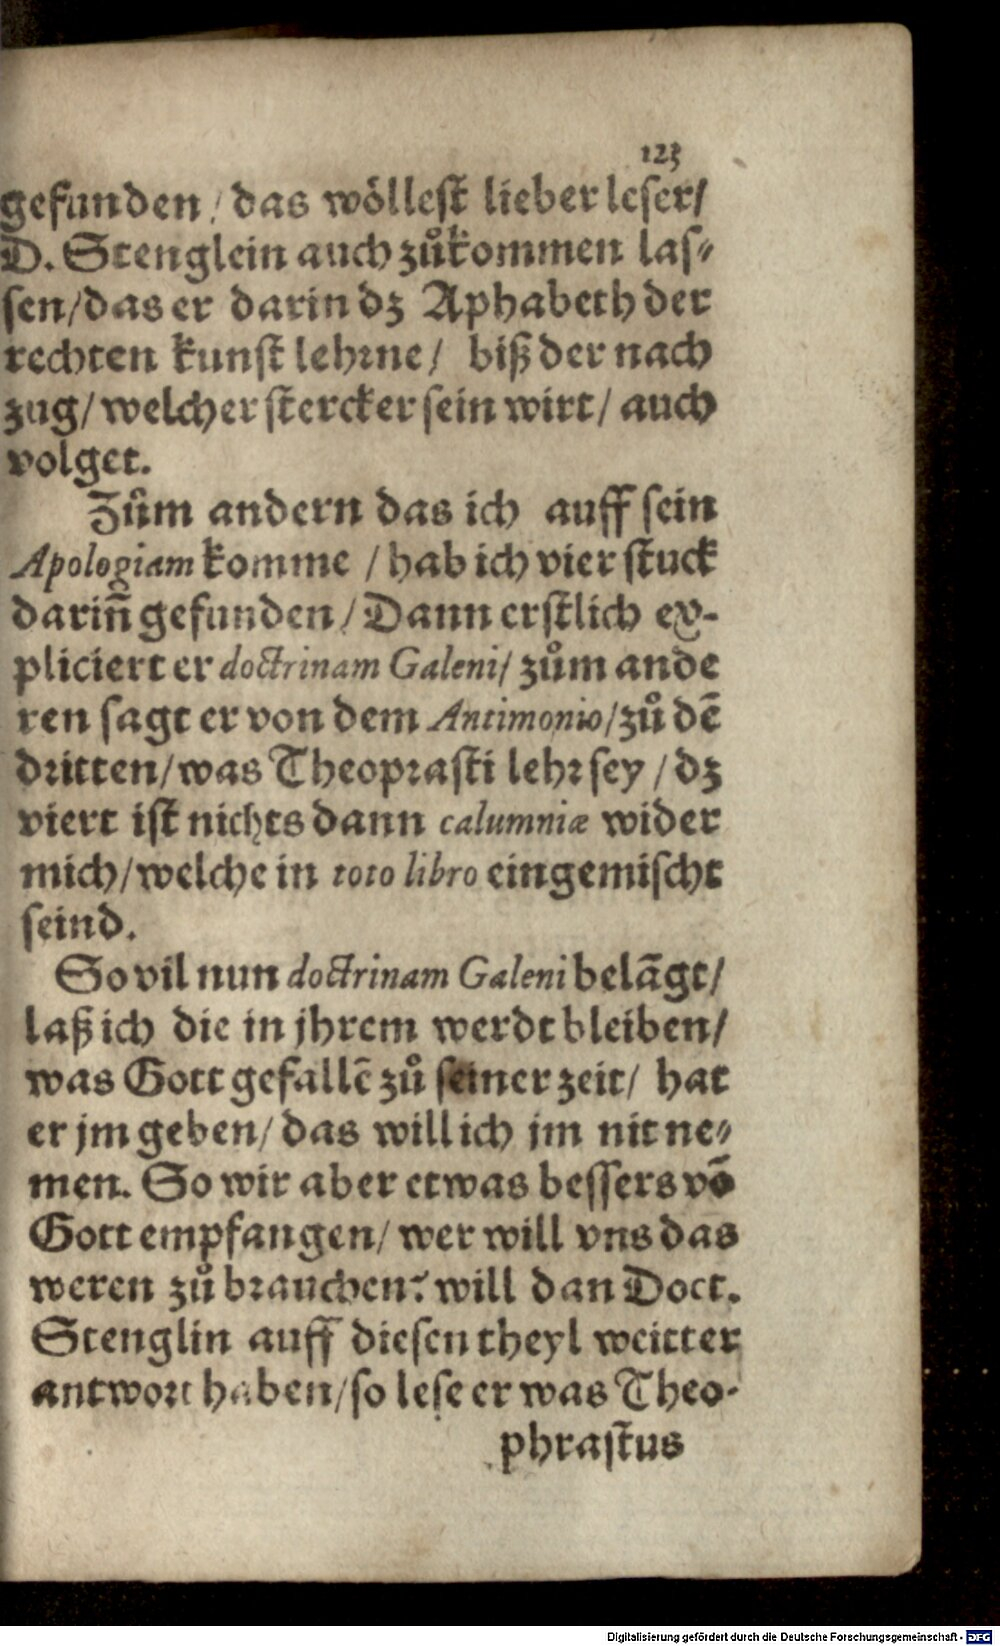 123
gefunden / das wöllest lieber leser/
D. Stenglein auch zůkommen las-
sen/das er darin dz Aphabeth der
rechten kunst lehrne/ biß der nach
zug/welcher stercker sein wirt/ auch
volget.
Zům andern das ich auff sein
Apologiam komme /hab ich vier stuck
darin̄ gefunden/Dann erstlich ex-
pliciert er doctrinam Galeni/ zům ande
ren sagt er von dem Antimonio/zů dē
dritten/was Theoprasti lehr sey /dz
viert ist nichts dann calumniæ wider
mich/welche in toto libro eingemischt
seind.
So vil nun doctrinam Galeni belāgt/
laß ich die in jhrem werdt bleiben/
was Gott gefallē zů seiner zeit/ hat
er jm geben/das will ich jm nit ne-
men. So wir aber etwas bessers vō
Gott empfangen/ wer will vns das
weren zů brauchen? will dan Doct.
Stenglin auff diesen theyl weitter
antwort haben/so lese er was Theo-
phrastus
Digitalisierung gefördert durch die Deutsche Forschungsgemeinschaft - DFG